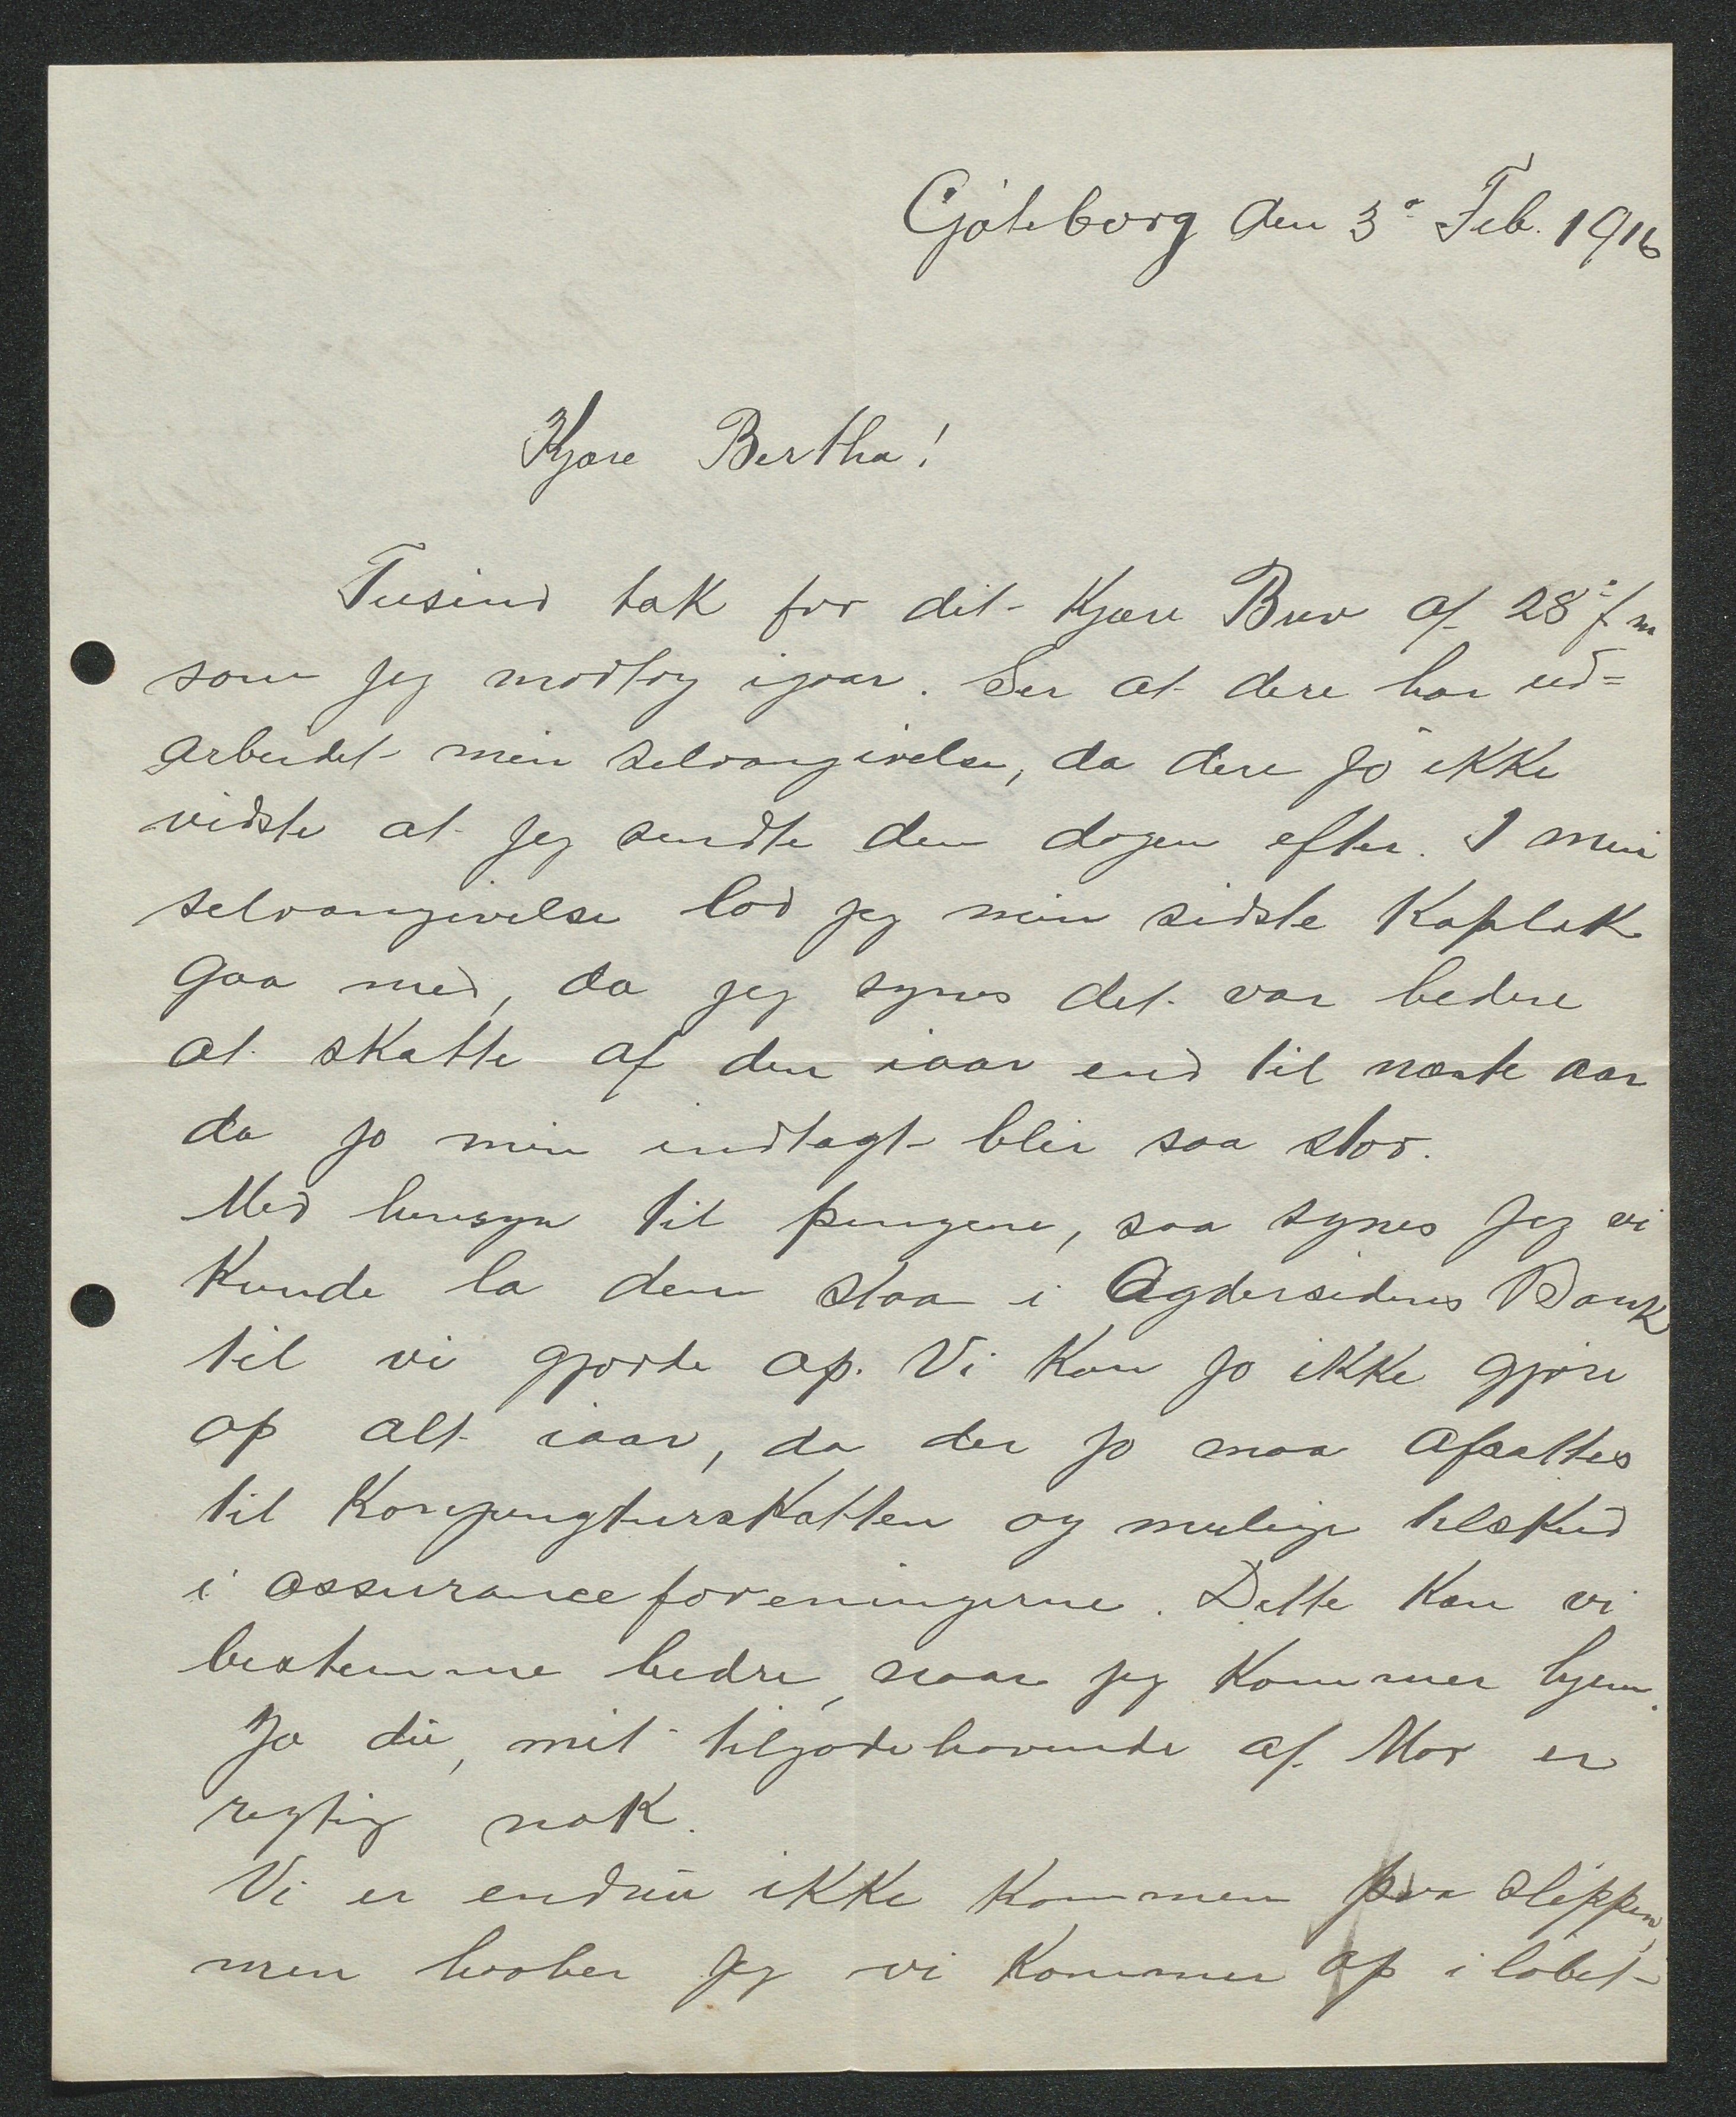 Gøteborg den 3º Feb. 1916
Kjære Bertha!
Tusind tak for dit kjære Brev af 28º f m
som jeg modtog igaar. Ser at dere har ud=
arbeidet min selvangivelse, da dere jo ikke
vidste at jeg sendte den dagen efter. I min
selvangivelse lod jeg min sidste Kaplak
gaa med, da jeg synes det var bedere
at skatte af den iaar end til næste aar
da jo min indtagt blir saa stor.
Med hensyn til pengene, saa synes jeg vi
kunde la dem staa i Agdersidens Bank
til vi gjorde op. Vi kan jo ikke gjøre
op alt iaar, da der jo maa afsattes
til Konjungturskatten og mulige tilskud
i assuranceforeningerne. Dette kan vi
bestemme bedre, naar jeg kommer hjem.
Ja du, mit tilgodehavende af Mor er
regtig nok.
Vi er endnu ikke kommen paa slippen,
men haaber jeg vi kommer op i løbet